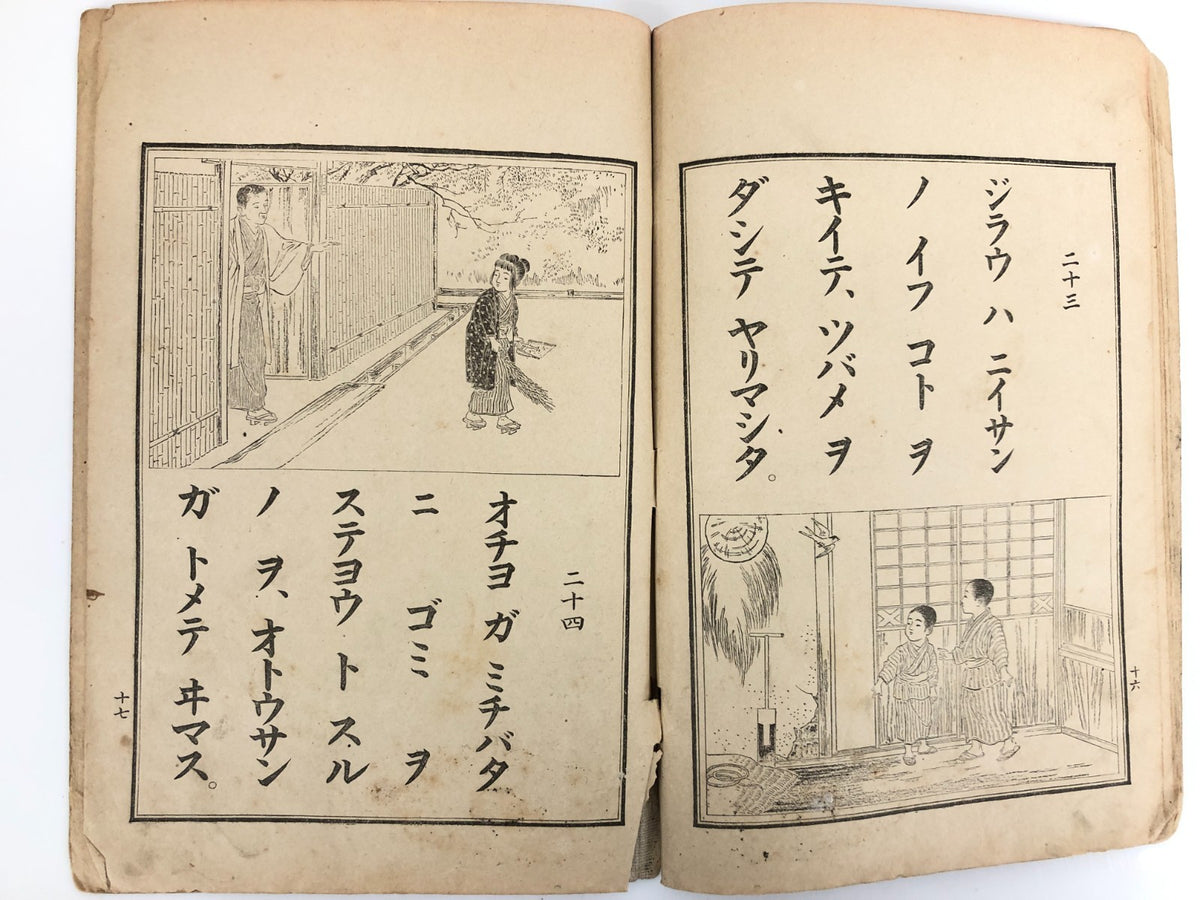 二十三
ジラウ ハ ニイサン
ノ イフ コト ヲ
キイテ、ツバメ ヲ
ダシテ ヤリマシタ。
十六
二十四
オチヨ ガ ミチバタ
ニ ゴミ ヲ
ステヨウ ト スル
ノ ヲ、オトウサン
ガ トメテ ヰマス。
十七